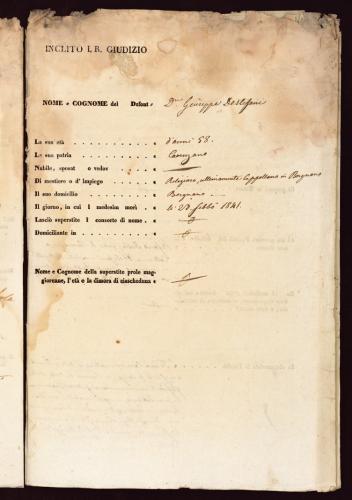 INCLITO I. R. GIUDIZIO
NOME e COGNOME del Defont e Dn. Giuseppe Destefani
La sua età . . . . . . . . . . . « d'anni 58.
La sua patria . . . . . . . . . . «
Nubile, sposat o vedov . . . . . . . «
Di mestiere o d' impiego . . . . . . . « Religioso, ultimamente Cappellano in Borgnano
Il suo domicilio . . . . . . . . . « Borgnano
Il giorno, in cui l medesim morì . . « li 27 febbo 1841.
Lasciò superstite l consorte di nome . . «
Domiciliante in . . . . . . . . . «
Nome e Cognome della superstite prole mag-
giorenne, l'età e la dimora di ciascheduna «